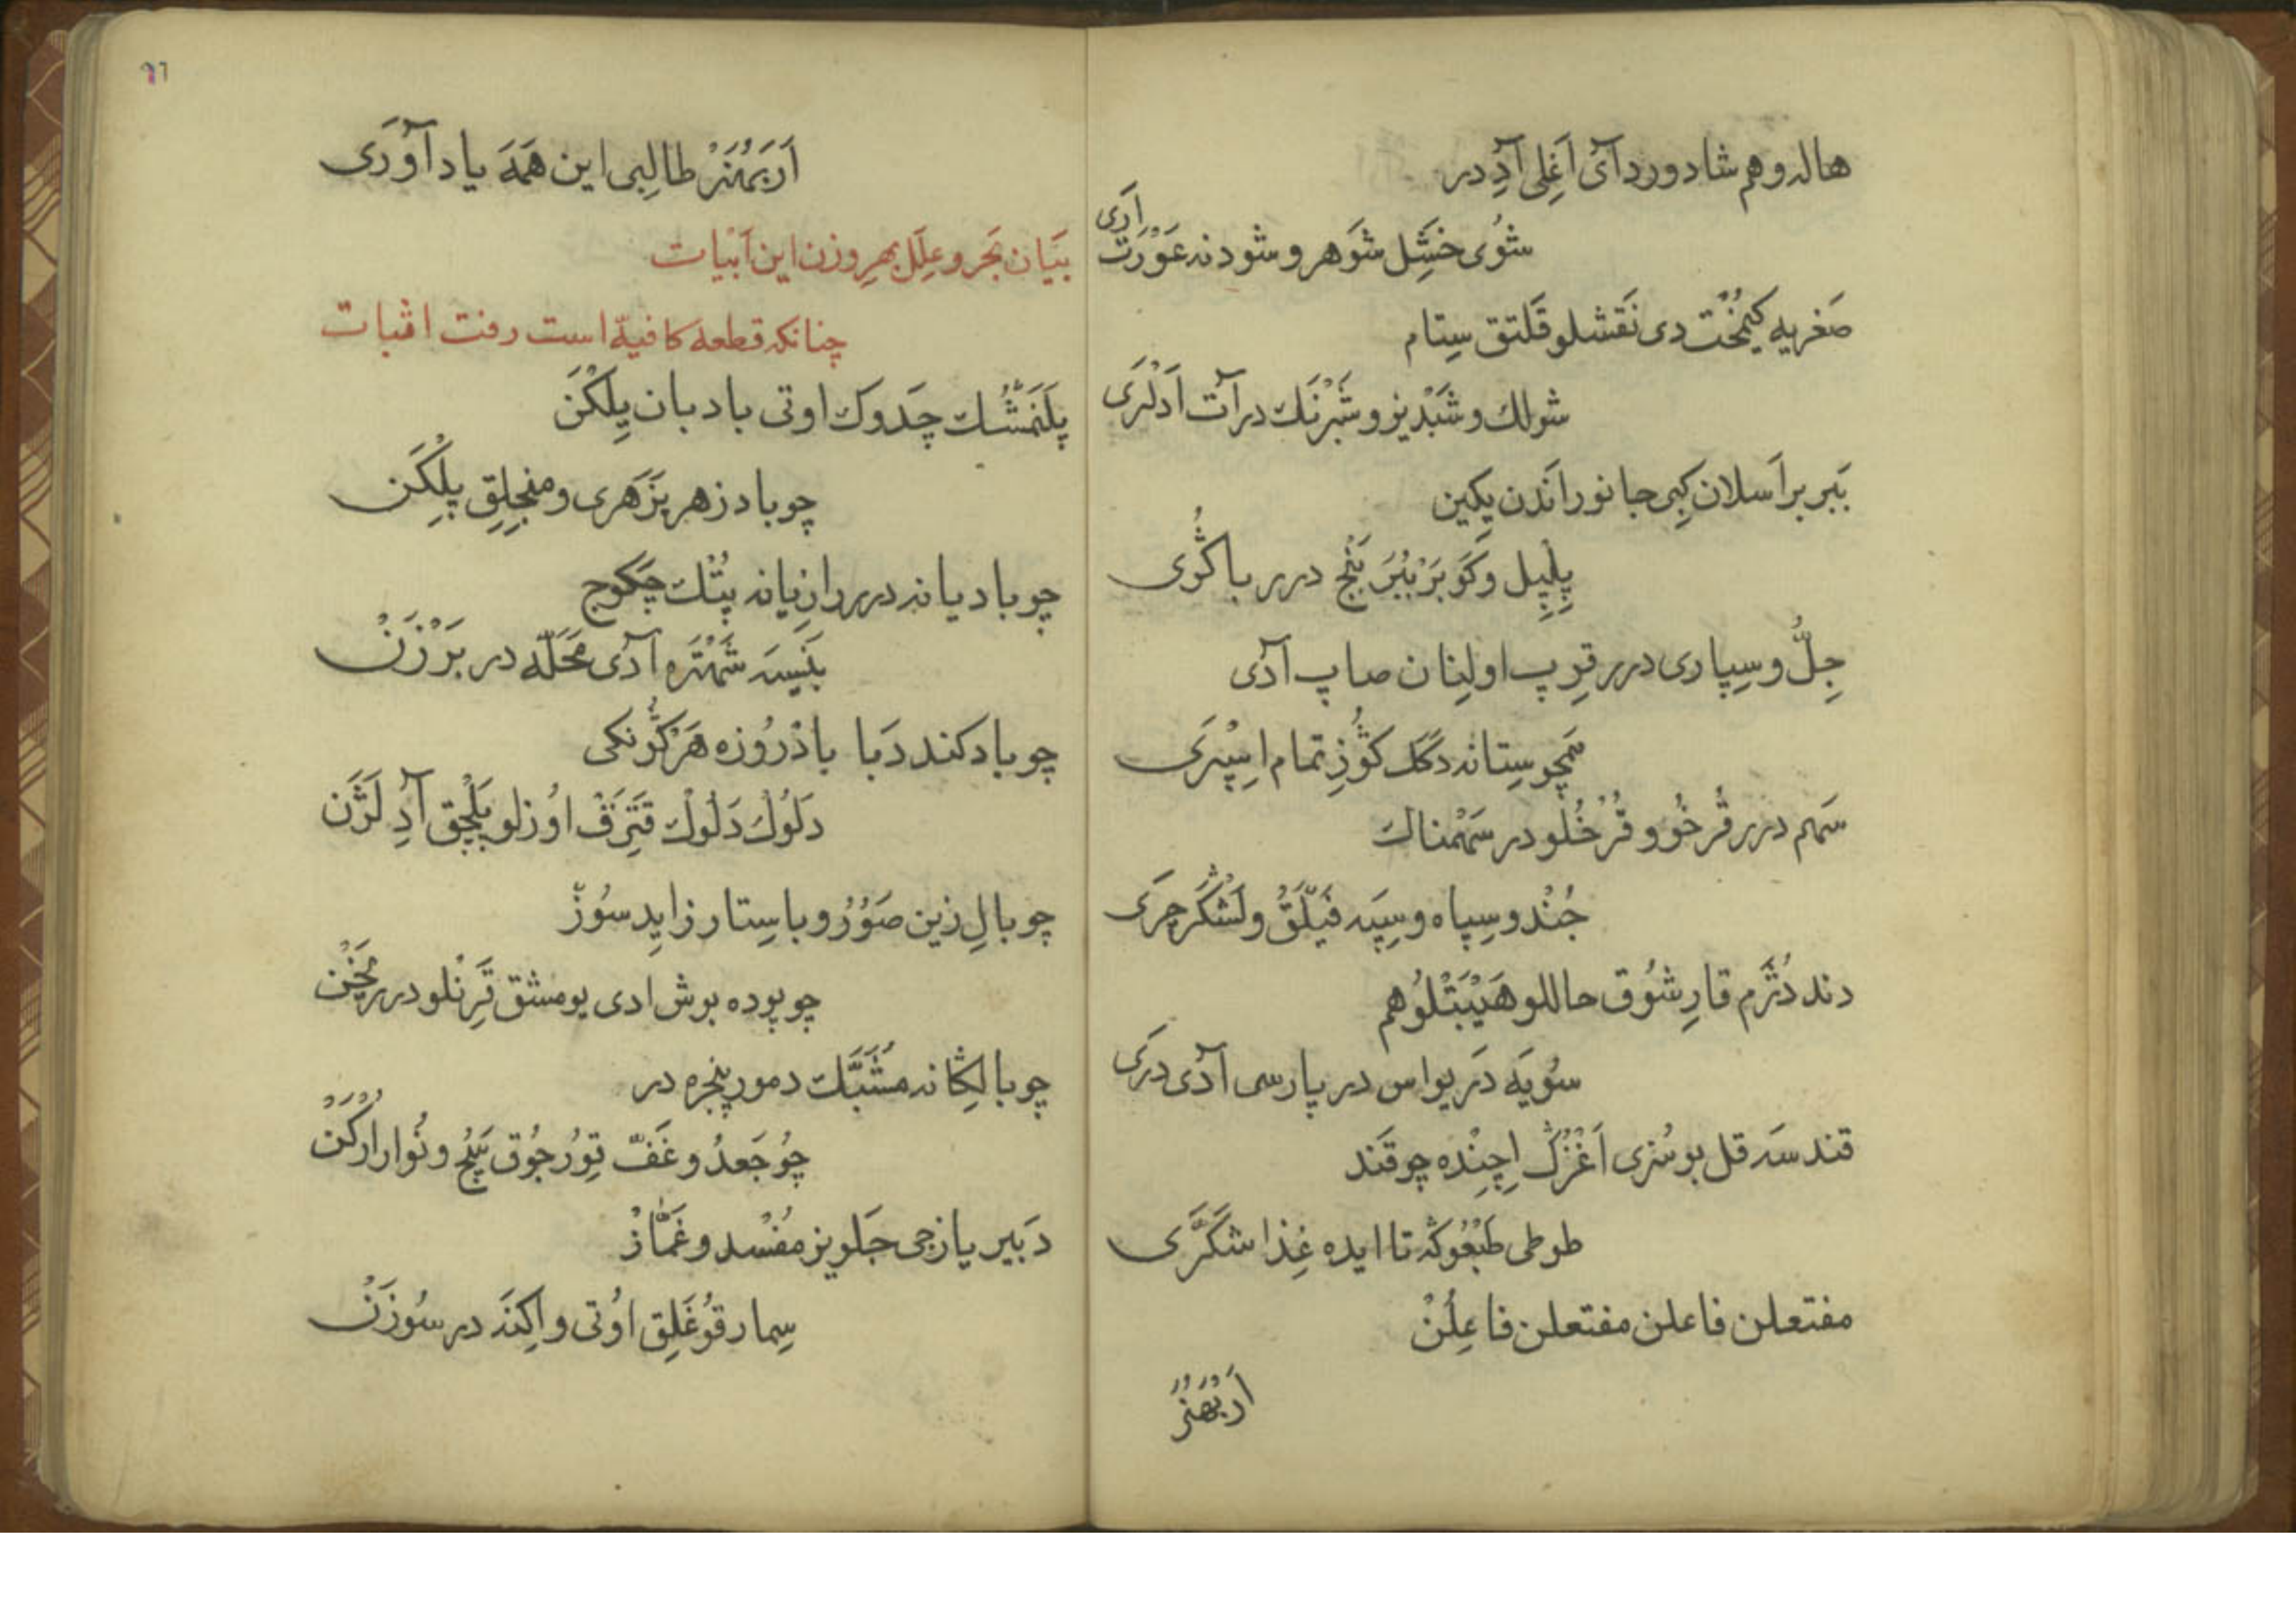 هاله وهم شادورد آئ اَغِلی آدِ در
شُوی خَشِل شَوهر و شود نه عَوْرَت اَرَی
صَغریه کیمُخْت دی نَقشلو قَلتق سِتام
شولك و شَبْدیز و شَبْرَنَك در آت اَدلَرَی
بَبر بر اَسلان کِبی جانور اَندن یِکین
پِلپِل وکَوبَر بُبَر بَنْج درر باکُژی
جِلّ وسِپاری درر قرِپ اولِنان صاپ آدَی
هَمچو سِتانه دکَل کوُزِ تمام اِسپَرَی
سَهم درر قُرخُو و قُرخُلو در سَهْمناك
جُنْد و سِپاه و سِپَه فَیْلَقُ و لَشْکَر چَرَی
دند دُژَم قارِشُوق حاللو هَیْبَتْلوُ هم
سُویَه دَر یواس در پارسی آدَی دَرَی
قند سَه قل بو سُزی اَغْزُڭ اِچِنْده چو قَند
طوطی طَبْعُوکَه تا ایده غِذا شَکَّرَی
مفتعلن فاعلن مفتعلن فاعِلُنْ
اَر بُهنَر
٩٦
اَر بَهُنَر طالِبی این هَمَه یاد آوَرَی
بَیَان بَحر و عِلَل بهرِ وزن این اَبْیات
چنانکه قطعهٔ کافیه است رفت اثبات
پَلَنمُشْك چَدوك اوتی بادبان یِلکَن
چو بادزهر پَزَهری و منجِلِق پِلَکَن
چو بادیانه درر رازِیانه پُتْك چَکوج
بَنیسَه شَهْتَرَه آدَی مَحَلّه در بَرْزَنْ
چو بادکند دَبا بادْرُوزه هَر کُونکی
دَلُوك دَلُوك قَتِرَقْ اوُزلو بَلْچِق آدِ لَژَن
چو بالِ زین صَوُرُ و باسِتار زایِد سُوز
چو پوده بوش ادی یومشق تَرِنلو درر یَخْن
چو بالِکانه مُشَبَّك دمور پنجره در
چُو جَعدُ و غَفّ تِوُرجُوق بَیچ و نُوار اُرکَنْ
دَبیر یازجی جَلویز مُفْسِد و غَمَّازْ
سِمار قوُغَلِق اوُتی و اِکنَه در سُوزَنْ